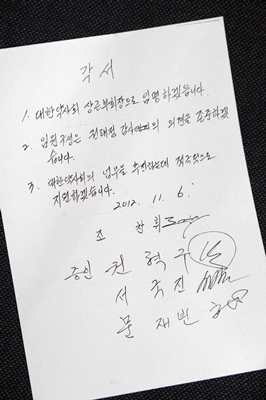 각서
1. 대한약사회 상근부회장으로 임명하겠습니다.
2. 임원구성은 전태진 의 의견을 존중하겠
습니다.
3. 대한약사회의 업무를 추진하는데 적극적으로
지원하겠습니다.
2012. 11. 6.
조찬휘
증인 권혁구
서국진
문재빈